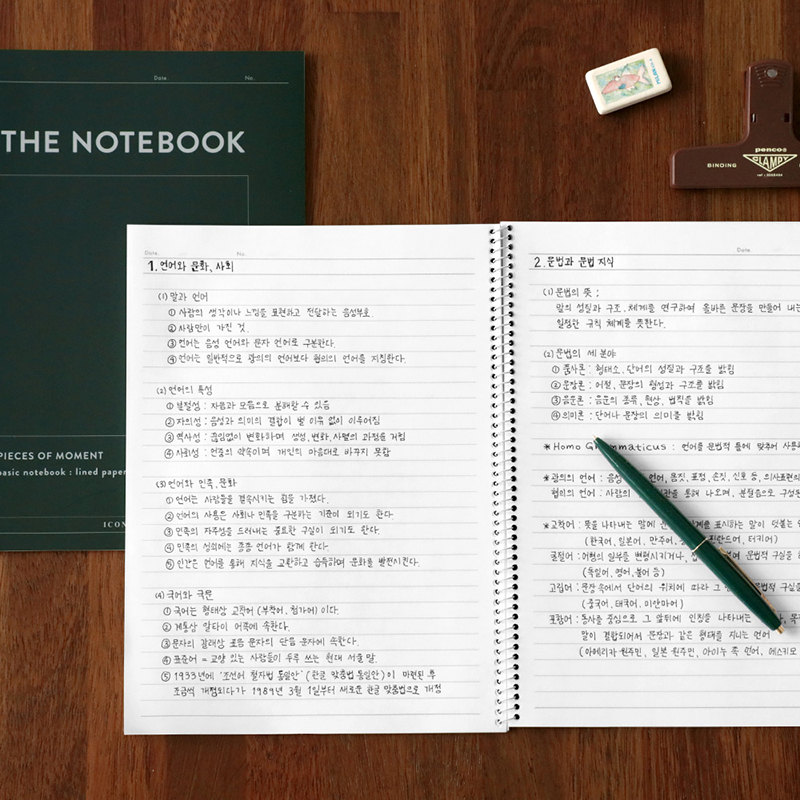 Date No.
THE NOTEBOOK
PIECES OF MOMENT
basic notebook : lined paper
ICON
penco
CLAMPY
BINDING
Date. No.
1. 언어와 문화, 사회
(1) 말과 언어
① 사람의 생각이나 느낌을 표현하고 전달하는 음성부호.
② 사람만이 가진 것.
③ 언어는 음성 언어와 문자 언어로 구분한다.
④ 언어는 일반적으로 광의의 언어보다 협의의 언어를 지칭한다.
(2) 언어의 특성
① 분절성 : 자음과 모음으로 분해할 수 있음
② 자의성 : 음성과 의미의 결합이 별 이유 없이 이루어짐
③ 역사성 : 끊임없이 변화하며 생성, 변화, 사멸의 과정을 거침
④ 사회성 : 언중의 약속이며 개인의 마음대로 바꾸지 못함
(3) 언어와 민족, 문화
① 언어는 사람들을 결속시키는 힘을 가졌다.
② 언어의 사용은 사회나 민족을 구분하는 기준이 되기도 한다.
③ 민족의 자주성을 드러내는 중요한 구실이 되기도 한다.
④ 민족의 성쇠에는 종종 언어가 함께 한다.
⑤ 인간은 언어를 통해 지식을 교환하고 습득하며 문화를 발전시킨다.
(4) 국어와 국문
① 국어는 형태상 교착어 (부착어, 첨가어) 이다.
② 계통상 알타이 어족에 속한다.
③ 문자의 갈래상 표음 문자의 단음 문자에 속한다.
④ 표준어 = 교양 있는 사람들이 두루 쓰는 현대 서울 말.
⑤ 1933년에 '조선어 철자법 통일안' (한글 맞춤법 통일안) 이 마련된 후
조금씩 개정되다가 1989년 3월 1일부터 새로운 한글 맞춤법으로 개정
Date.
2. 문법과 문법 지식
(1) 문법의 뜻 ;
말의 성질과 구조, 체계를 연구하여 올바른 문장을 만들어 내는
일정한 규칙 체계를 뜻한다.
(2) 문법의 세 분야
① 품사론 : 형태소, 단어의 성질과 구조를 밝힘
② 문장론 : 어절, 문장의 형성과 구조를 밝힘
③ 음운론 : 음운의 종류, 현상, 법칙을 밝힘
④ 의미론 : 단어나 문장의 의미를 밝힘
* Homo Grammaticus : 언어를 문법적 틀에 맞추어 사용
* 광의의 언어 : 언어, 몸짓, 표정, 손짓, 신호 등, 의사표현의
협의의 언어 : 사람의 통해 나오며, 분절음으로 구성된
* 교착어 : 뜻을 나타내는 말에 관계를 표시하는 말이 덧붙는 언
(한국어, 일본어, 만주어, 핀란드어, 터키어)
굴절어 : 어형의 일부를 변형시키거나, 문법적 구실을
(독일어, 영어, 불어 등)
고립어 : 문장 속에서 단어의 위치에 따라 그 문법적 구실을
(중국어, 태국어, 미얀마어)
포합어 : 동사를 중심으로 그 앞뒤에 인칭을 나타내는
말이 결합되어서 문장과 같은 형태를 지니는 언어
(아메리카 원주민, 일본 원주민, 아이누 족 언어, 에스키모